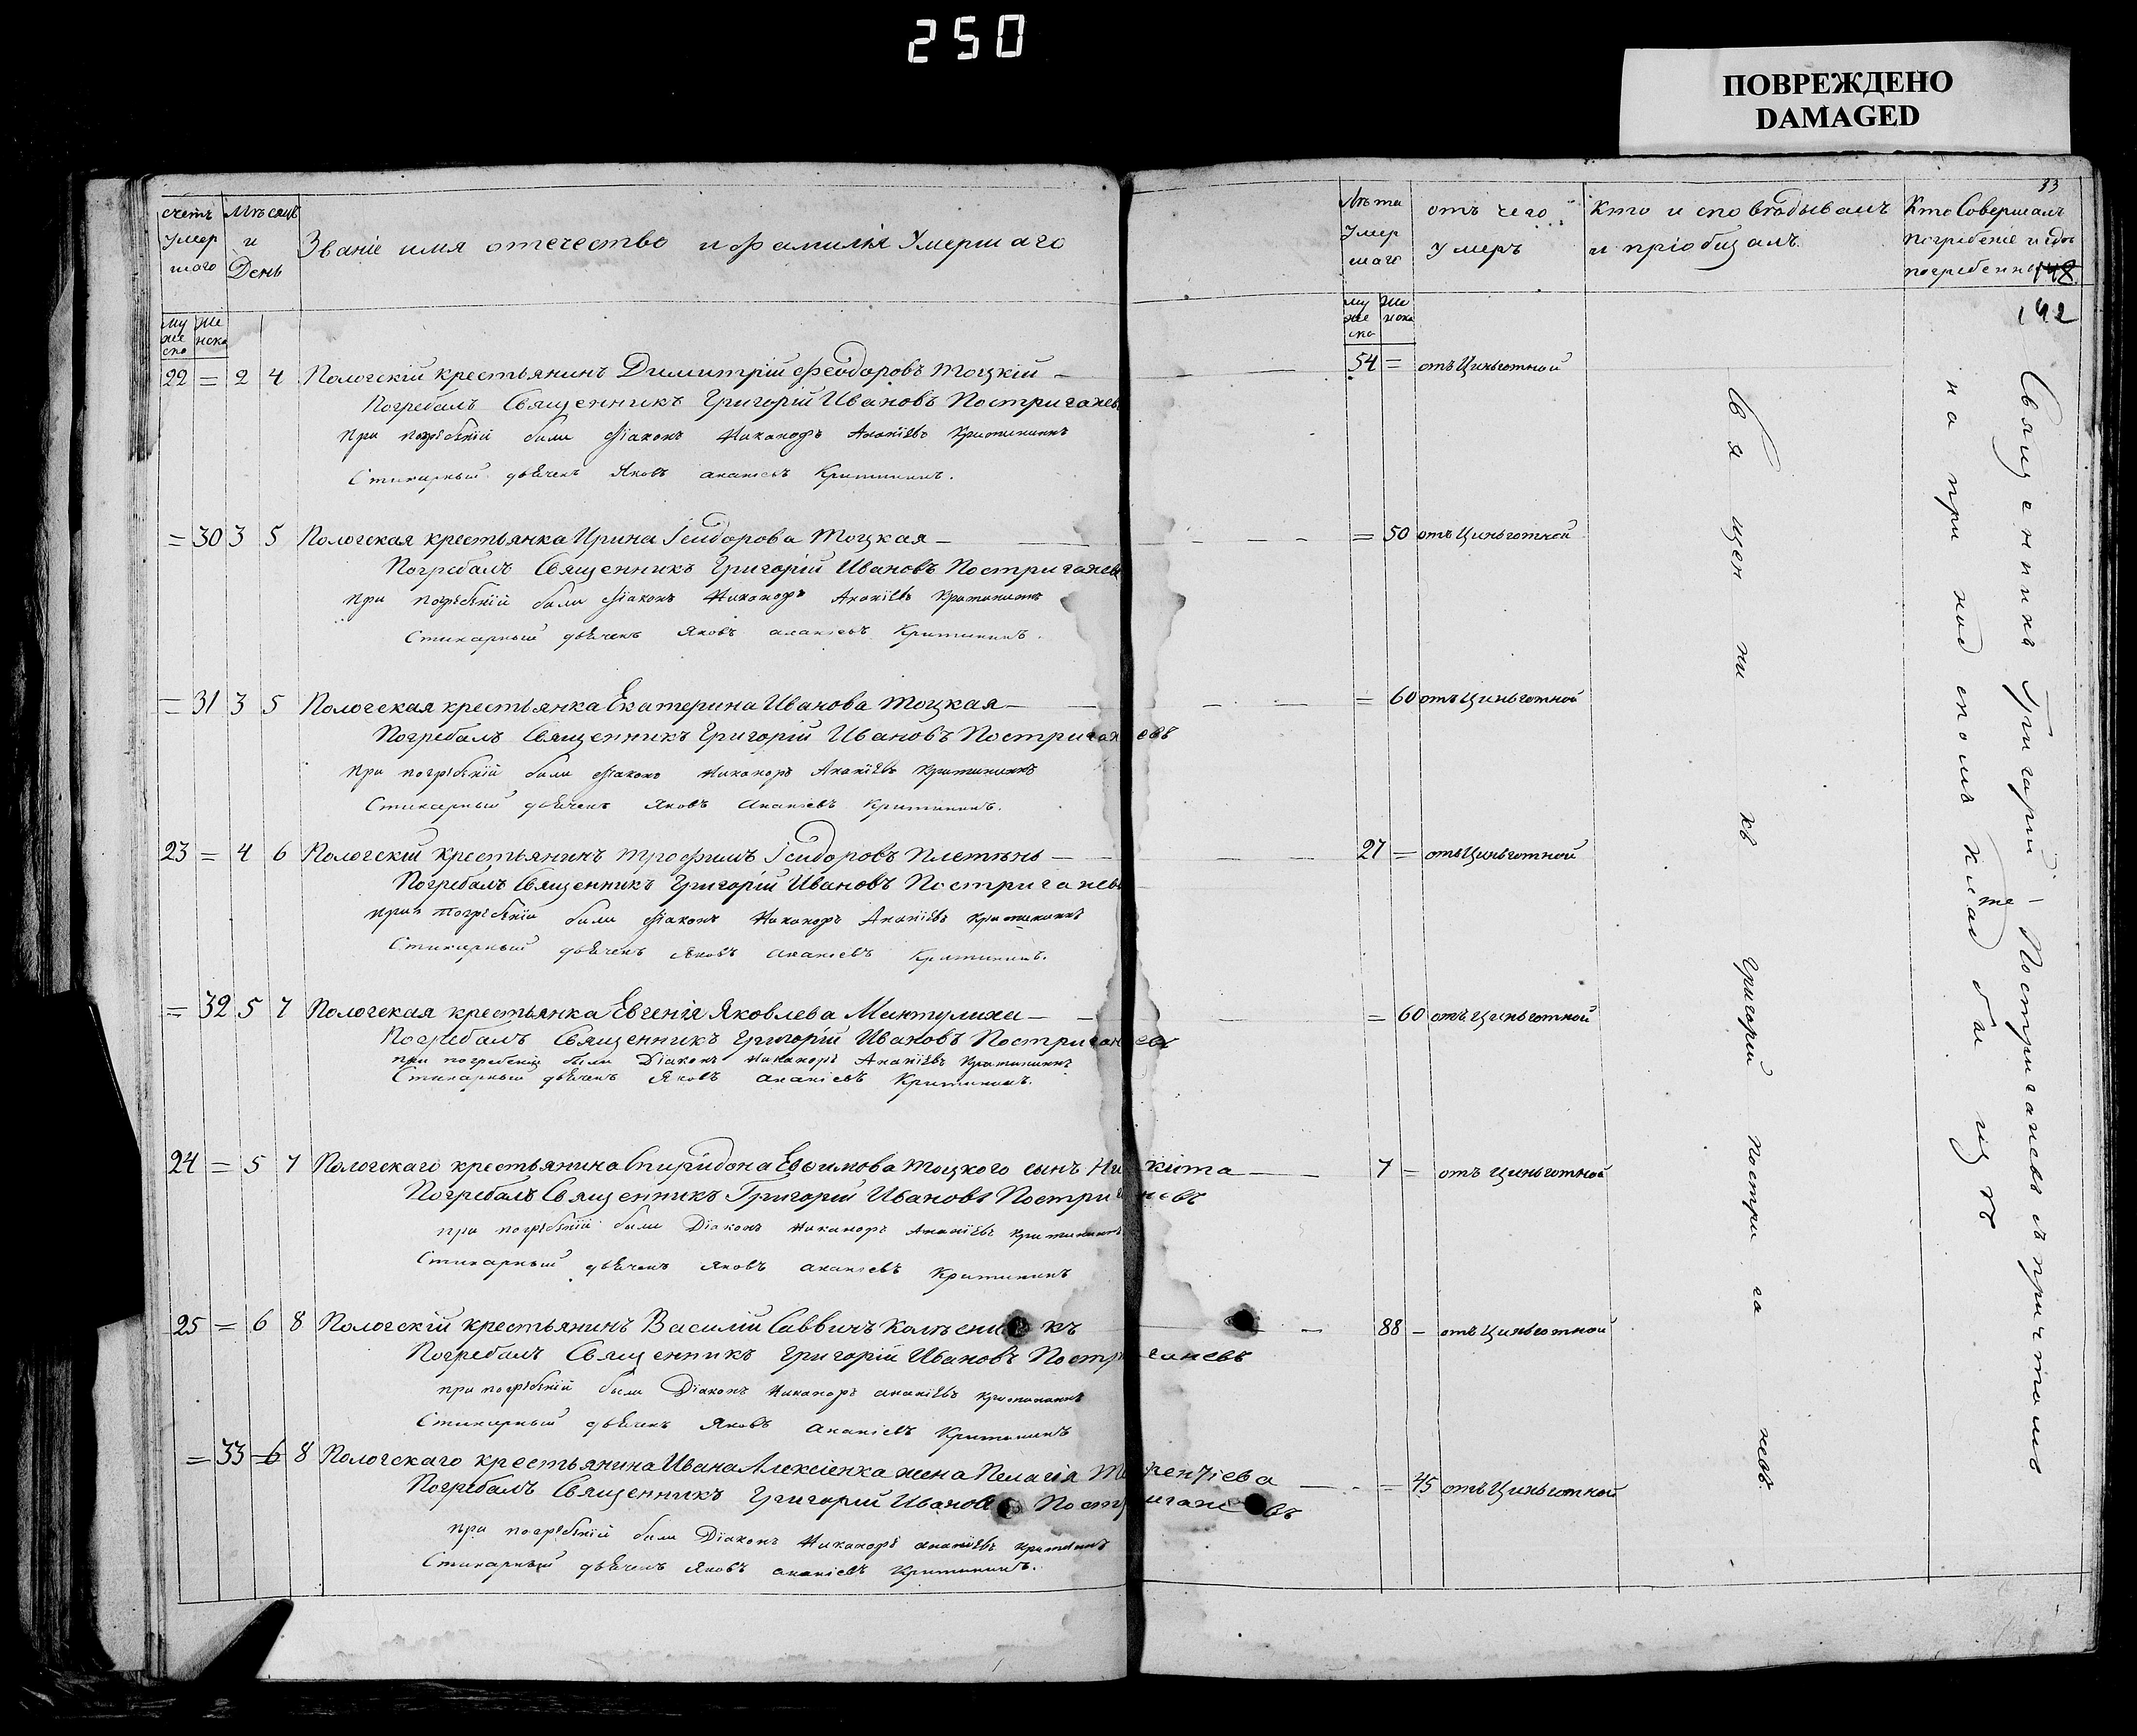 250
ПОВРЕЖДЕНО
DAMAGED
33
счетъ умершаго
Мѣсяцъ и День
Званіе имя отечество и фамилія Умершаго
Лѣта Умершаго
отъ чего Умеръ
Кто исповѣдывалъ и пріобщалъ
Кто Совершалъ погребеніе и гдѣ погребенны
148
142
муже ско
же нска
муже ско
же нска
22 = 2 4 Пологскій крестьянинъ Димитрій Феодоровъ Тоцкій — 54 = отъ Циньготной
Погребалъ Священникъ Григорій Ивановъ Постриганевъ
при погребеній были Діаконъ Никаноръ Ананіевъ Критининъ
Стихарный дьячекъ Яковъ ананіевъ Критининъ.
= 30 3 5 Пологская крестьянка Ирина Ісидорова Тоцкая — = 50 отъ Циньготной
Погребалъ Священникъ Григорій Ивановъ Постриганевъ
при погребеній были Діаконъ Никаноръ Ананіевъ Критининъ
Стихарный дьячекъ Яковъ ананіевъ Критининъ.
= 31 3 5 Пологская крестьянка Екатерина Иванова Тоцкая — = 60 отъ Циньготной
Погребалъ Священникъ Григорій Ивановъ Постриганевъ
при погребеній были Діаконъ Никаноръ Ананіевъ Критининъ
Стихарный дьячекъ Яковъ Ананіевъ Критининъ.
23 = 4 6 Пологскій крестьянинъ Трофимъ Ісидоровъ Плетѣнь — 27 = отъ Циньготной
Погребалъ Священникъ Григорій Ивановъ Постриганевъ
при погребеніи были Діаконъ Никаноръ Ананіевъ Критининъ
Стихарный дьячекъ Яковъ Ананіевъ Критининъ.
= 32 5 7 Пологская крестьянка Евгенія Яковлева Минтулиха — = 60 отъ Циньготной
Погребалъ Священникъ Григорій Ивановъ Постриганевъ
при погребеніи были Діаконъ Никаноръ Ананіевъ Критининъ
Стихарный дьячекъ Яковъ ананіевъ Критининъ.
24 = 5 7 Пологскаго крестьянина Спиридона Евфимова Тоцкого сынъ Никита — 7 = отъ Циньготной
Погребалъ Священникъ Григорій Ивановъ Постриганевъ
при погребеній были Діаконъ Никаноръ Ананіевъ Критининъ
Стихарный дьячекъ Яковъ ананіевъ Критининъ
25 = 6 8 Пологскій крестьянинъ Василій Саввичъ Колѣсникъ — 88 — отъ Циньготной
Погребалъ Священникъ Григорій Ивановъ Постриганевъ
при погребеній были Діаконъ Никаноръ ананіевъ Критининъ
Стихарный дьячекъ Яковъ Ананіевъ Критининъ
= 33 6 8 Пологскаго крестьянина Ивана Алексіенка жена Пелагія Терентіева — = 45 отъ Циньготной
Погребалъ Священникъ Григорій Ивановъ Постриганевъ
при погребеній были Діаконъ Никаноръ ананіевъ Критининъ
Стихарный дьячекъ Яковъ ананіевъ Критининъ.
Священникъ Григорій Постриганевъ
Священникъ Григорій Постриганевъ съ причтомъ
на приходскомъ кладбищѣ